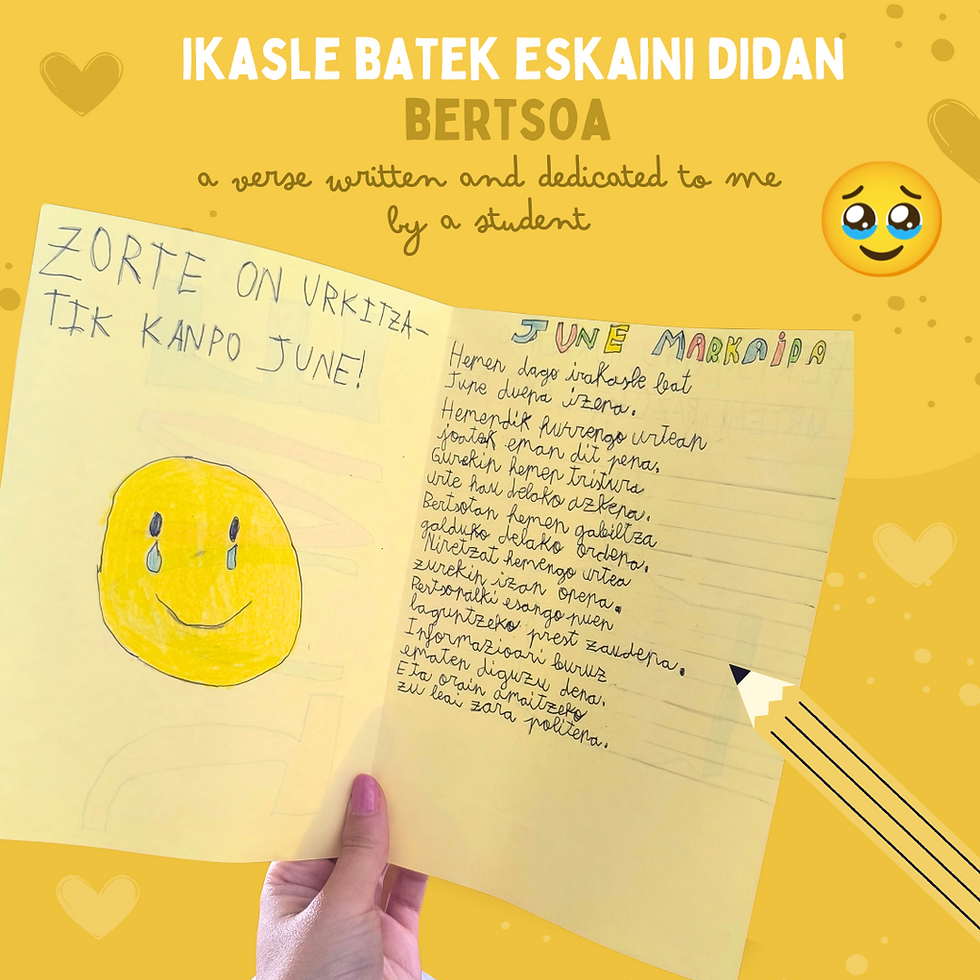 IKASLE BATEK ESKAINI DIDAN
BERTSOA
a verse written and dedicated to me
by a student
ZORTE ON URKITZA-
TIK KANPO JUNE!
JUNE MARKAIDA
Hemen dago irakasle bat
June duena izena.
Hemendik hurrengo urtean
joatek eman dit pena.
Gurekin hemen tristura
urte hau delako azkena.
Bertsotan hemen gabiltza
galduko delako ordena.
Niretzat hemengo urtea
zurekin izan onena.
Bertsopalki esango nuen
laguntzeko prest zaudena.
Informazioari buruz
ematen diguzu dena.
Eta orain amaitzeko
zu bai zara politena.